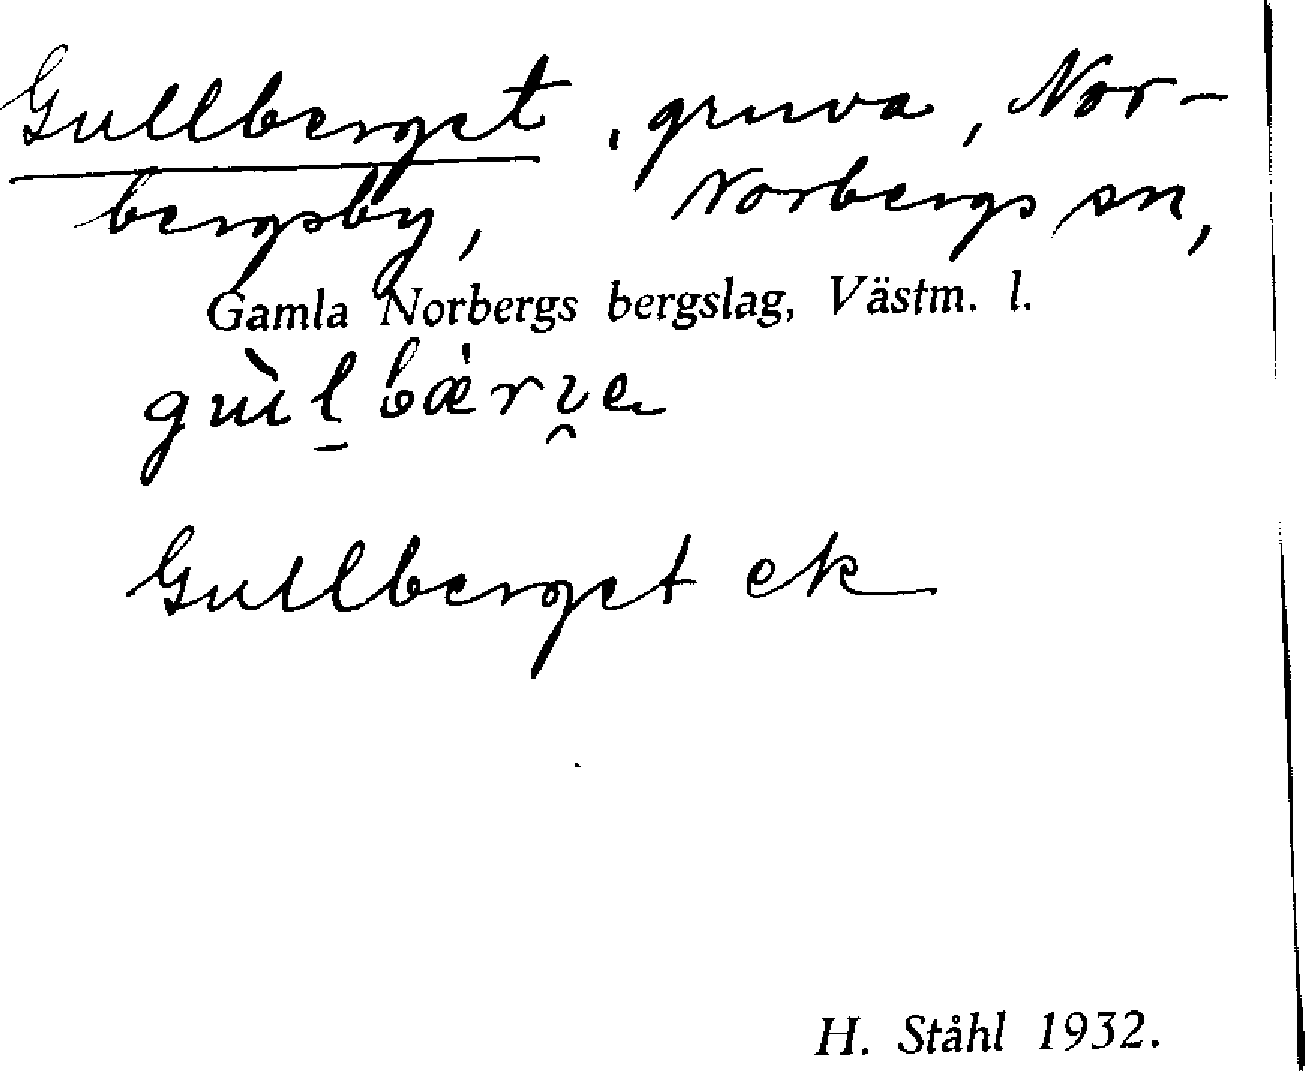 Gullberget, gruva, Nor-
bergsby, Norbergs sn,
Gamla Norbergs bergslag, Västm. l.
Gullberget ek
H. Ståhl 1932.